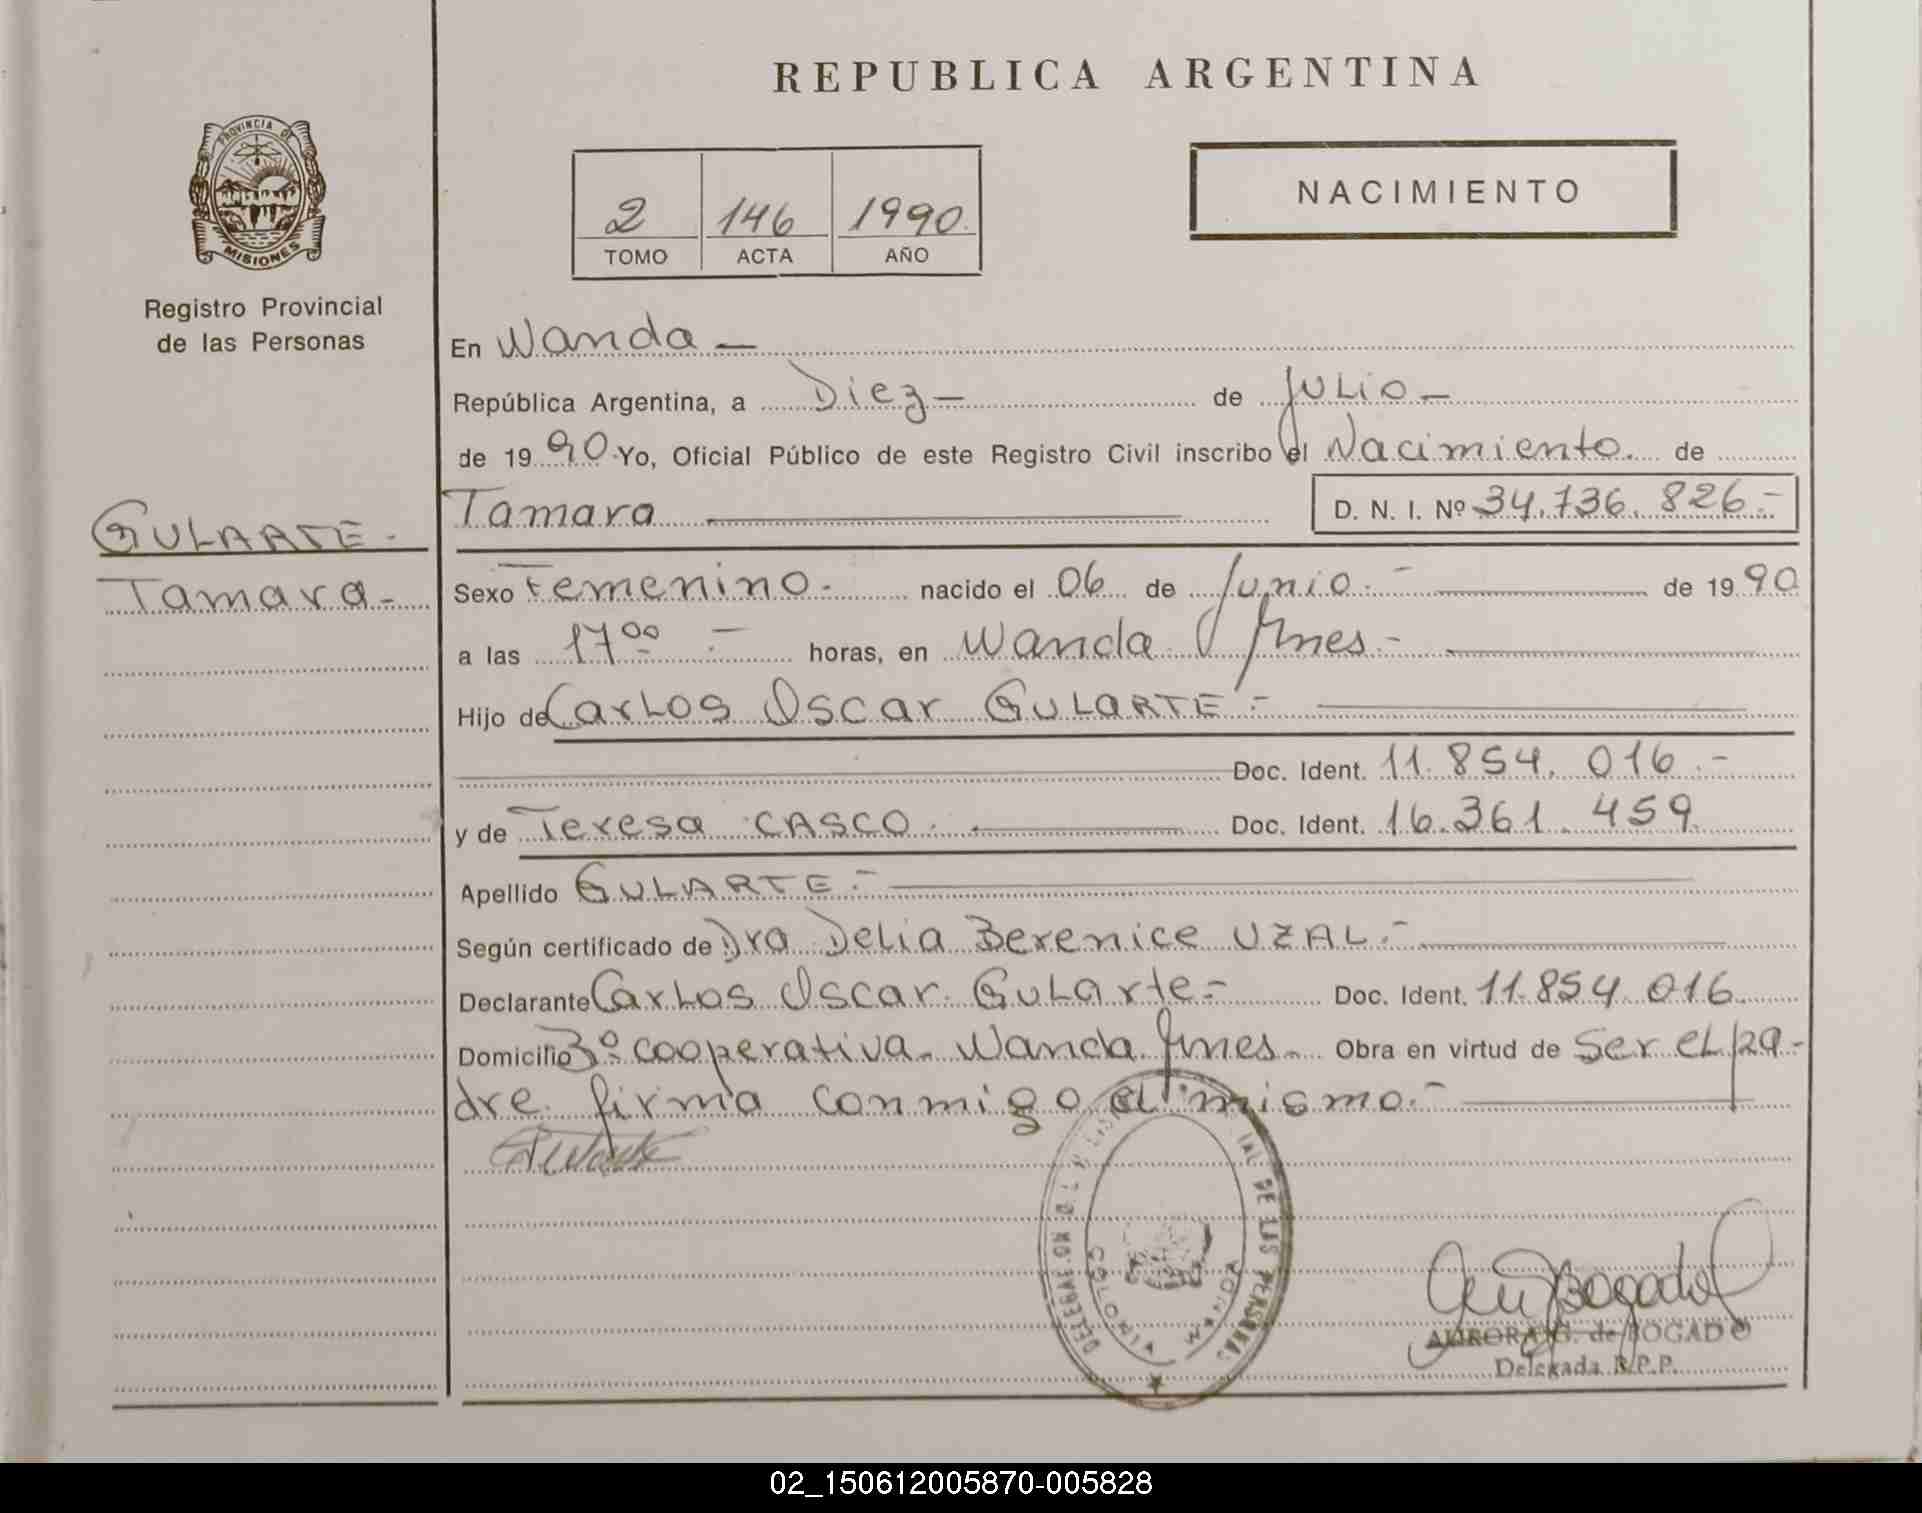 REPUBLICA ARGENTINA
PROVINCIA DE
MISIONES
Registro Provincial
de las Personas
2 146 1990.
TOMO ACTA AÑO
NACIMIENTO
En Wanda —
República Argentina, a Diez — de Julio —
de 1990 Yo, Oficial Público de este Registro Civil inscribo el Nacimiento. de
GULARTE.-
Tamara-
Tamara D. N. I. Nº 34.736.826.-
Sexo Femenino. nacido el 06 de Junio.- de 1990
a las 17 00 .- horas, en Wanda Mnes.-
Hijo de Carlos Oscar GULARTE.-
Doc. Ident. 11.854.016.-
y de Teresa CASCO. Doc. Ident. 16.361.459.
Apellido GULARTE.-
Según certificado de Dra Delia Berenice UZAL.-
Declarante Carlos Oscar Gularte.- Doc. Ident. 11.854.016
Domicilio 3º cooperativa. Wanda Mnes. Obra en virtud de Ser el pa-
dre. firma conmigo el mismo.-
DE LAS PERSONAS
COLONIA WANDA
Bogado
AURORA G. de BOGADO
Delegada R.P.P.
02_150612005870-005828